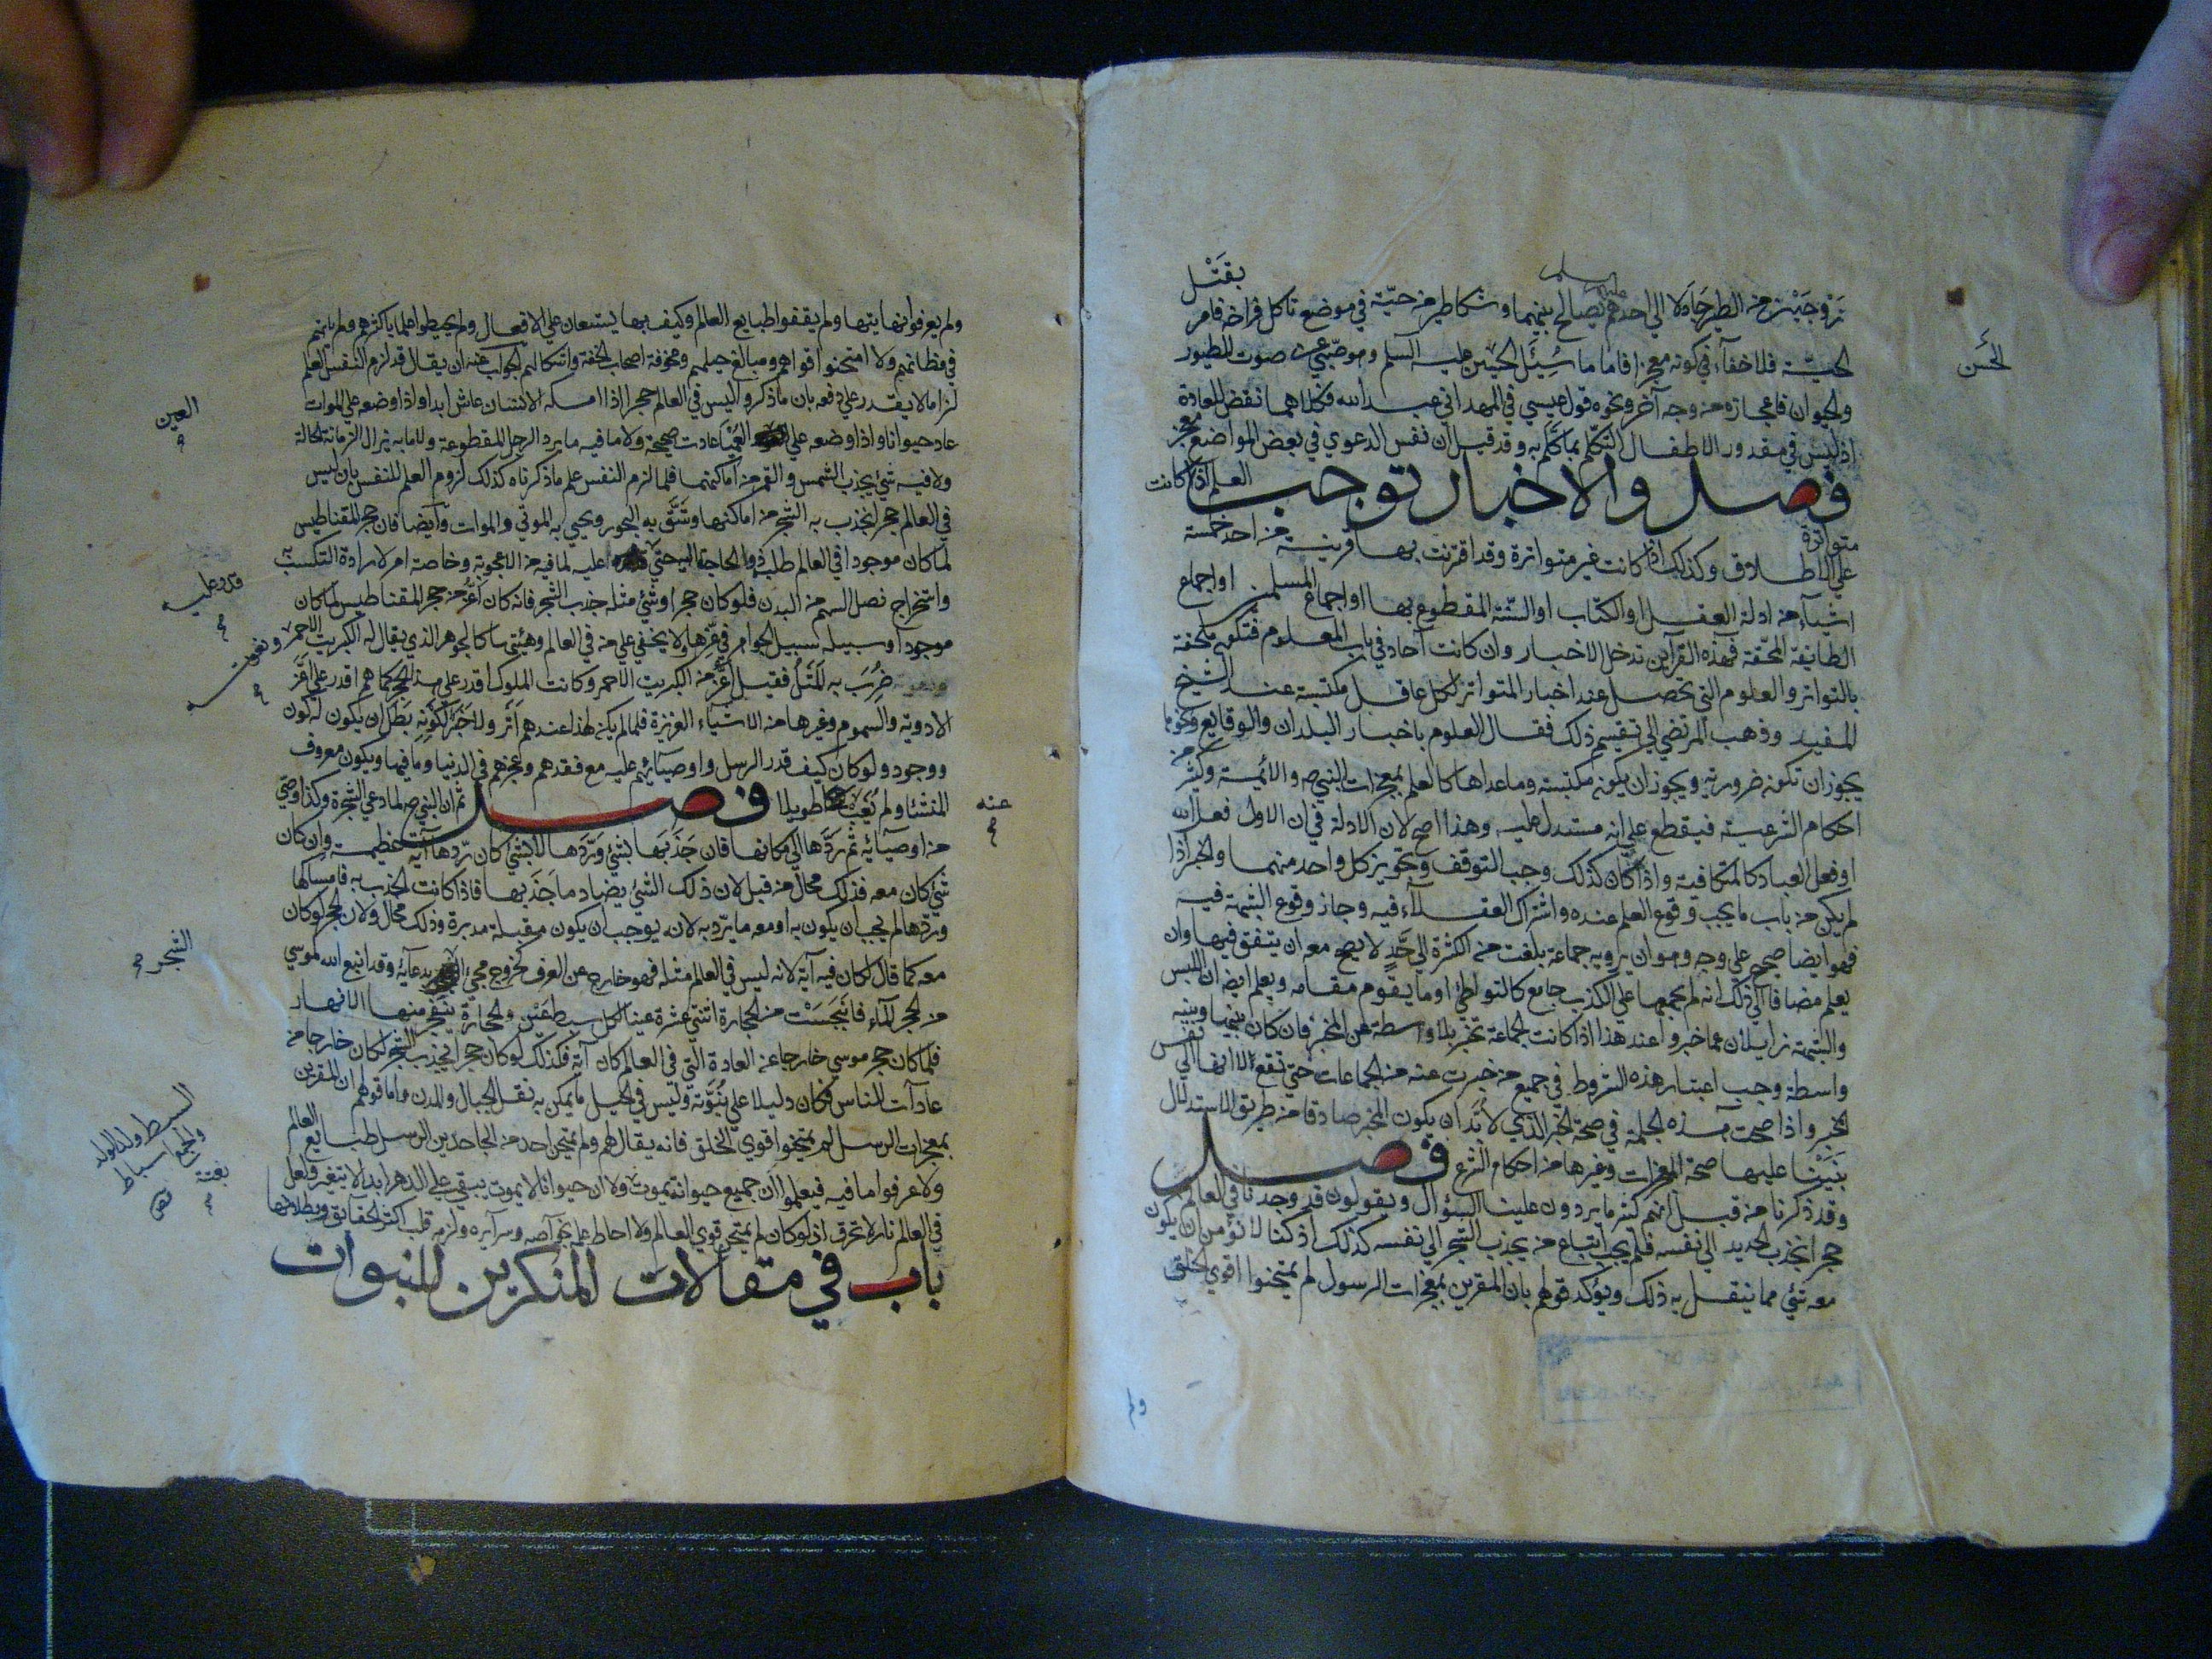 زوجين من الطير جاءلا الى احدهم عليه السلم يصالح بينهما وشكا طير من حيّة في موضع تاكل فراخه فامر بقتل
الحيّة فلا خفآء في كونه معجزا فاما ما سُئِل الحسين عليه السلم وهو صبي عن صوت الطيور
الحَسن
والحيوان فاعجازه من وجه آخر ونحوه قول عيسى في المهد اني عبد الله فكلاهما نقض للعادة
اذ ليس في مقدور الاطفال التكلم بما تكلم به وقد قيل ان نفس الدعوي في بعض المواضع معجز
فصل والاخبار توجب العلم اذا كانت
متواترة
على الاطلاق وكذلك اذا كانت غير متواترة وقد اقترنت بها قرينة من احد خمسة
اشيآء من ادلة العقل او الكتاب او السّنّة المقطوع بها او اجماع المسلمين او اجماع
الطايفة المحقّة فهذه القرآين تدخل الاخبار وان كانت آحاد في باب المعلوم فتكون ملحقة
بالتواتر والعلوم التي تحصل عند اخبار المتواتر لكل عاقل مكتسبة عند الشيخ
المفيد وذهب المرتضي الى تقسيم ذلك فقال العلوم باخبار البلدان والوقايع ونحوها
يجوز ان تكون ضرورية ويجوز ان يكون مكتسبة وما عداها كالعلم بمعجزات النبي ص والائمة وكثير من
احكام الشرعيت فيقطع على انه مستدل عليه وهذا اصح لان الادلة في ان الاول فعل الله
او فعل العباد كالمتكافية واذا كان كذلك وجب التوقف وتجويز كل واحد منهما والخبر اذا
لم يكن من باب ما يجب وقوع العلم عنده واشتراك العقلآء فيه وجاز وقوع الشبهة فيه
فهو ايضا صحيح على وجه وهو ان يرويه جماعة بلغت من الكثرة الى حَدٍ لا يصح معه ان يتفق فيها وان
يعلم مضافا الى ذلك انه لم يجمعها على الكذب جامع كالتواطئ او ما يقوم مقامه ويعلم ايضا ان اللبس
والشبهة زايلان عما خبروا عند هذا اذا كانت الجماعة تخبر بلا واسطة عن المخبر فان كان بينهما وبينه
واسطة وجب اعتبار هذه الشروط في جميع من خبرت عنه من الجماعات حتى تقع الانتهآ الى نفس
الخبر واذا صحت هذه الجملة في صحة الخبر الذي لا بُدّ ان يكون المخبر صادقا من طريق الاستدلال
بَنَيْنا عليها صحة المعجزات وغيرها من احكام الشرع فصل
وقد ذكرنا من قبل انهم كثيرما يردون علينا السؤال ويقولون قد وجدنا في العالم
حجرا يجذب الحديد الى نفسه فلم يجب اتباع من يجذب الشجر الى نفسه كذلك اذ كنا لا نؤمن ان يكون
معه شئ مما ينقل به ذلك ويؤكد قولهم بان المقرين بمعجزات الرسول لم يمتحنوا قوي الخلق
ولم
ولم يعرفوا نهايتها ولم يقفوا طبايع العالم وكيف بها يستعان على الافعال ولم يحيطوا علما باكثرهم ولم ياتهم
في مظانهم ولا امتحنوا قواهم ومبالغ حيلهم ومخوفة اصحاب الخفة واشكالهم الجواب عنه ان يقال قد لزم النفس العلم
لزاما لا يقدر على دفعه بان ما ذكروا ليس في العالم حجرا اذا امسكه الانسان عاش ابدا واذا وضعه على الموات
عاد حيوانا واذا وضعه على العَمْيَا عادت صحيحة ولا ما فيه ما يرد الرجل المقطوعة ولا ما به يزال الزمانة لحالة
العين
ولا فيه شئ يجذب الشمس والقمر من اماكنهما فلما لزم النفس علم ما ذكرناه كذلك لزوم العلم للنفس بان ليس
في العالم حجرا يجذب به الشجر من اماكنها وشَقّ به البحور ويحيي به الموتي والموات وايضا فان حجر المقناطيس
لما كان موجودا في العالم طلب ذوا الحاجة اليه حتي عليه لما فيه من الاعجوبة وخاصة امر لارادة التكسب به
قدر عليه
واستخراج نصل السهم من البدن فلو كان حجرا او شئ مثله جذب الشجر فانه كان اعزّ من حجر المقناطيس لما كان
موجودا وسبيله سبيل الجواهر في عزّها ولا يخفي على من في العالم وهيئتها كالجوهر الذي يقال له الكبريت الاحمر
ضُرِبَ به المثَل فقيل اعزّ من الكبريت الاحمر وكانت الملوك اقدر على هذا الحجر كما هم اقدر على اعزّ
الادوية والسموم وغيرها من الاشياء العزيزة فلما لم يكن لهذا عندهم اثر ولا خَبَر لكونه بَطَل ان يكون له كون
ووجود ولو كان كيف قدر الرسل واوصيآئهم عليه مع فقدهم وعجزهم في الدنيا وما فيها ويكون معروف
المنشئا ولم يغب طويلا فصل ثم ان النبي ص لما دعي الشجرة وكذا وصيّ
عنه
من اوصيآئه ثم ردّها الى مكانها فان جَذَبها بشئ ورَدّها لا بشئ كان ردّها آية عظيمة وان كان
شئ كان معه فذلك محال من قبل لان ذلك الشئ يضاد ما جَذَبها فاذا كانت الجذب به فامساكها
وردّها لم يجب ان يكون به او معه ما يردّ به لانه يوجب ان يكون مقبلة مدبرة وذلك محال ولان الحجر لو كان
معه كما قال لكان فيه آية لانه ليس في العالم مثله فهو خارج عن العرف كخروج مجئ بدعآئه وقد انبع الله لموسي
الشجر
من الحجر المآء فانبَجَسَت من الحجارة اثنتي عشرة عينا لكل سبط عَيْن والحجارة يتفجر منها الانهار
فلما كان حجر موسي خارجا عن العادة التي في العالم كان آية فكذلك لو كان حجرا يجذب الشجر لكان خارجا من
عادآت الناس فكان دليلا على نُبُوّته وليس في الحيل ما يمكن به نقل الجبال والمدن واما قولهم ان المقرين
السبط ولد الولد
والجمع اسباط
بمعجزات الرسل لم يمتحنوا قوي الخلق فانه يقال لهم ولم يمتحن احد من الجاحدين الرسل طبايع العالم
ولا عرفوا ما فيه فيعلموا ان جميع حيوانه يموت ولا ان حيوانا لا يموت يبقي على الدهر ابدا لا يتغير ولعل
في العالم نار لا تحرق اذ لو كان لم يمتحن قوي العالم ولا احاط علم بخواصه وسرآيره ولزم قلب اكثر الحقايق وبطلانها
باب في مقالات المنكرين للنبوات